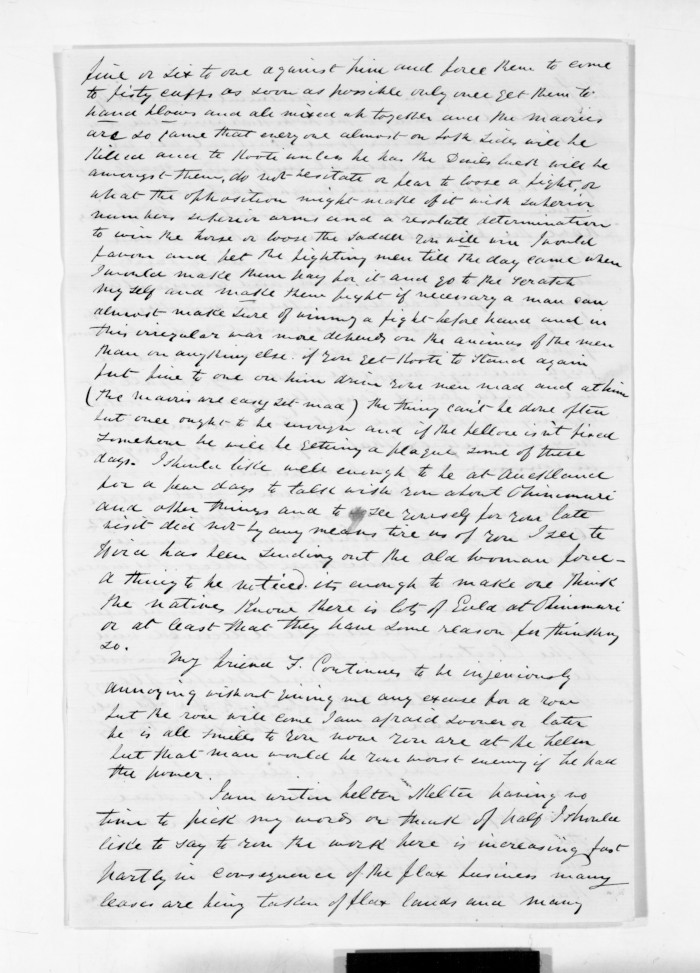 five or six to one against him and force them to come
to fisty cuffs as soon as possible only once get them to
hand blows and all mixed up together and the maories
are so game that everyone almost on both sides will be
killed and te Kooti unless he has the Devils luck will be
amongst them, do not hesitate or fear to loose a fight, or
what the opposition might make of it with superior
numbers superior arms and a resolute determination
to win the horse or loose the saddle you will win I would
favour and pet the fighting men till the day came when
I would make them pay for it and go to the scratch
my self and make them fight if necessary a man can
almost make sure of winning a fight before hand and in
this irregular war more depends on the animus of the men
than on anything else. if you get Kooti to stand again
put five to one on him drive your men mad and at him
(the maoris are easy set mad) the thing can't be done often
but once ought to be enough and if the fellow isn't fixed
somehow he will be getting a plague some of these
days. I should like well enough to be at Auckland
for a few days to talk with you about Ohinemuri
and other things and to see yourself for your late
visit did not by any means tire us of you I see te
Hira has been sending out the old woman force -
a thing to be noticed. its enough to make one think
the natives know there is lots of Gold at Ohinemuri
or at least that they have some reason for thinking
so.
My friend F. Continues to be ingeniously
annoying without giving me any excuse for a row
but the row will come I am afraid sooner or later
he is all smiles to you now you are at the helm
but that man would be your worst enemy if he had
the power.
I am writin helter skelter having no
time to pick my words or think of half I should
like to say to you the work here is increasing fast
partly in consequence of the flax business many
leases are being taken of flax lands and many